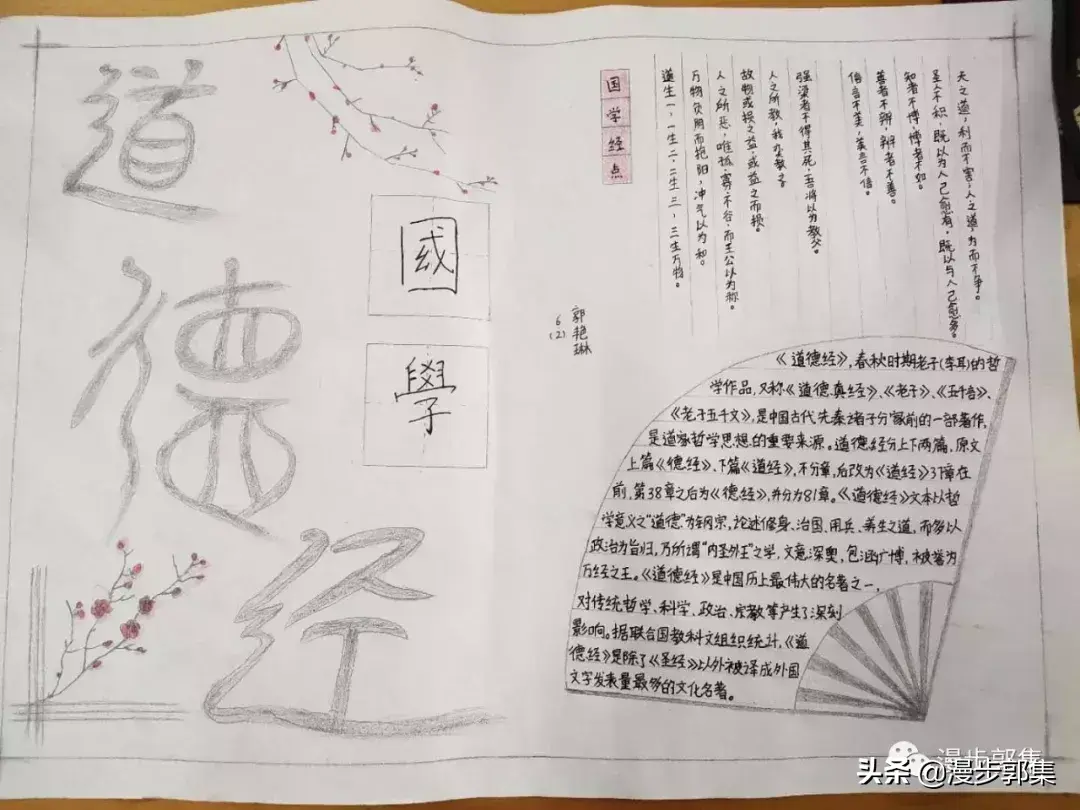 道德经
國學
天之道，利而不害，人之道，为而不争。
圣人不积，既以为人己愈有，既以与人己愈多。
知者不博，博者不知。
善者不辩，辩者不善。
信言不美，美言不信。
强梁者不得其死，吾将以为教父。
人之所教，我亦教之。
故物或损之益，或益之而损。
人之所恶，唯孤、寡、不谷，而王公以为称。
万物负阴而抱阳，冲气以为和。
道生一，一生二，二生三，三生万物。
国学经点
郭艳琳
6(2)
《道德经》，春秋时期老子(李耳)的哲
学作品，又称《道德真经》、《老子》、《五千言》、
《老子五千文》，是中国古代先秦诸子分家前的一部著作，
是道家哲学思想的重要来源。道德经分上下两篇，原文
上篇《德经》、下篇《道经》，不分章，后改为《道经》37章在
前，第38章之后为《德经》，并分为81章。《道德经》文本以哲
学意义之"道德"为纲宗，论述修身、治国、用兵、养生之道，而多以
政治为旨归，乃所谓"内圣外王"之学，文意深奥，包涵广博，被誉为
万经之王。《道德经》是中国历上最伟大的名著之一，
对传统哲学、科学、政治、宗教等产生了深刻
影响。据联合国教科文组织统计，《道
德经》是除了《圣经》以外被译成外国
文字发表量最多的文化名著。
漫步郭集
头条 @漫步郭集